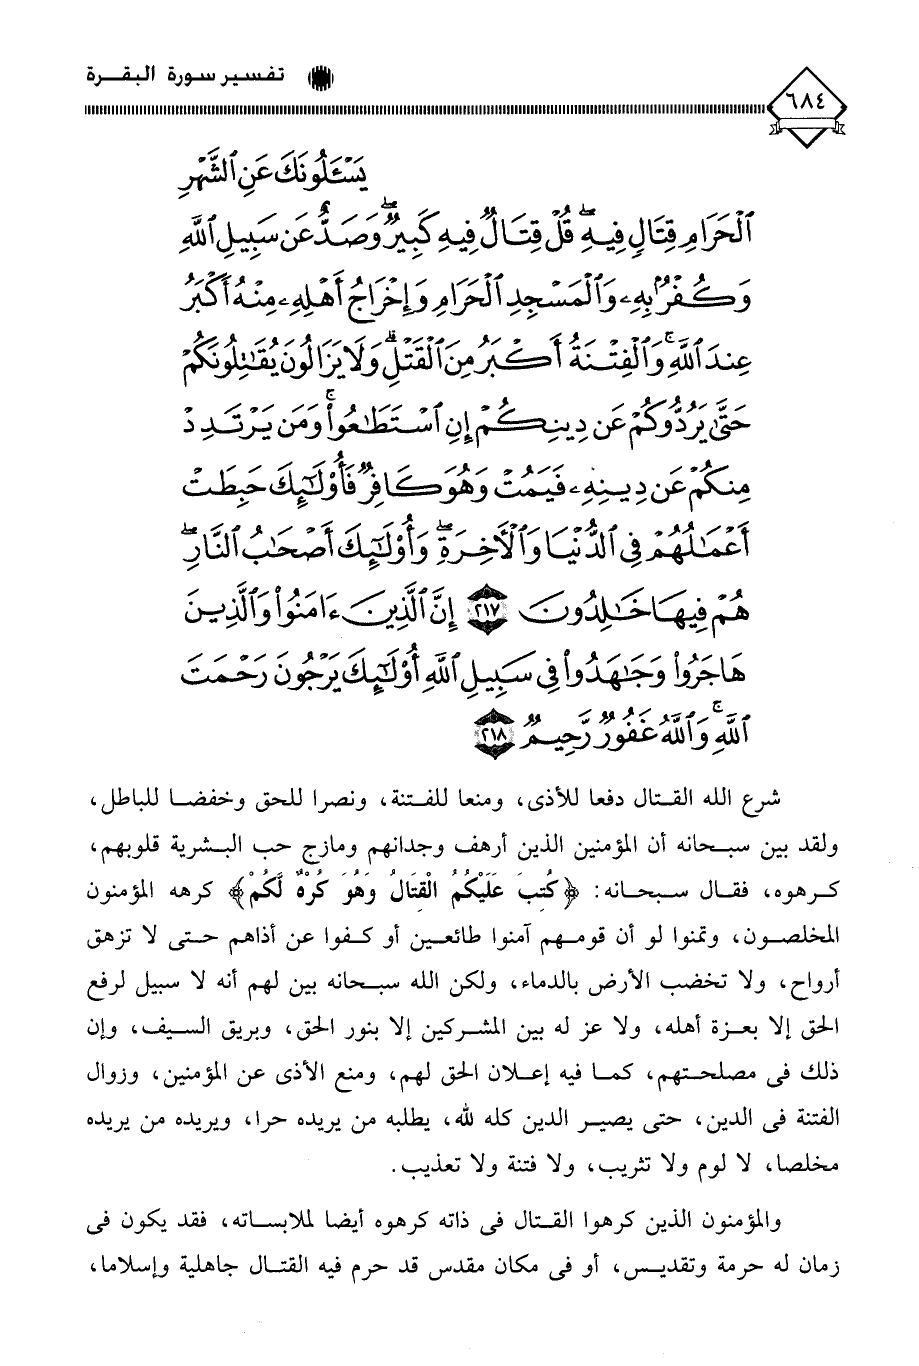 تفسير سورة البقرة
٦٨٤
يَسْـَٔلُونَكَ عَنِ ٱلشَّهْرِ
ٱلْحَرَامِ قِتَالٍ فِيهِ ۖ قُلْ قِتَالٌ فِيهِ كَبِيرٌ ۖ وَصَدٌّ عَن سَبِيلِ ٱللَّهِ
وَكُفْرٌۢ بِهِۦ وَٱلْمَسْجِدِ ٱلْحَرَامِ وَإِخْرَاجُ أَهْلِهِۦ مِنْهُ أَكْبَرُ
عِندَ ٱللَّهِ ۚ وَٱلْفِتْنَةُ أَكْبَرُ مِنَ ٱلْقَتْلِ ۗ وَلَا يَزَالُونَ يُقَـٰتِلُونَكُمْ
حَتَّىٰ يَرُدُّوكُمْ عَن دِينِكُمْ إِنِ ٱسْتَطَـٰعُوا۟ ۚ وَمَن يَرْتَدِدْ
مِنكُمْ عَن دِينِهِۦ فَيَمُتْ وَهُوَ كَافِرٌ فَأُو۟لَـٰٓئِكَ حَبِطَتْ
أَعْمَـٰلُهُمْ فِى ٱلدُّنْيَا وَٱلْـَٔاخِرَةِ ۖ وَأُو۟لَـٰٓئِكَ أَصْحَـٰبُ ٱلنَّارِ ۖ
هُمْ فِيهَا خَـٰلِدُونَ ٢١٧ إِنَّ ٱلَّذِينَ ءَامَنُوا۟ وَٱلَّذِينَ
هَاجَرُوا۟ وَجَـٰهَدُوا۟ فِى سَبِيلِ ٱللَّهِ أُو۟لَـٰٓئِكَ يَرْجُونَ رَحْمَتَ
ٱللَّهِ ۚ وَٱللَّهُ غَفُورٌ رَّحِيمٌ ٢١٨
شرع الله القتال دفعا للأذى، ومنعا للفتنة، ونصرا للحق وخفضا للباطل،
ولقد بين سبحانه أن المؤمنين الذين أرهف وجدانهم ومازج حب البشرية قلوبهم،
كرهوه، فقال سبحانه: ﴿كُتِبَ عَلَيْكُمُ الْقِتَالُ وَهُوَ كُرْهٌ لَّكُمْ﴾ كرهه المؤمنون
المخلصون، وتمنوا لو أن قومهم آمنوا طائعين أو كفوا عن أذاهم حتى لا تزهق
أرواح، ولا تخضب الأرض بالدماء، ولكن الله سبحانه بين لهم أنه لا سبيل لرفع
الحق إلا بعزة أهله، ولا عز له بين المشركين إلا بنور الحق، وبريق السيف، وإن
ذلك فى مصلحتهم، كما فيه إعلان الحق لهم، ومنع الأذى عن المؤمنين، وزوال
الفتنة فى الدين، حتى يصير الدين كله لله، يطلبه من يريده حرا، ويريده من يريده
مخلصا، لا لوم ولا تثريب، ولا فتنة ولا تعذيب.
والمؤمنون الذين كرهوا القتال فى ذاته كرهوه أيضا لملابساته، فقد يكون فى
زمان له حرمة وتقديس، أو فى مكان مقدس قد حرم فيه القتال جاهلية وإسلاما،